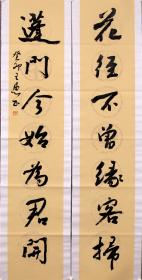 花径不曾缘客扫
蓬門今始為君開
癸卯